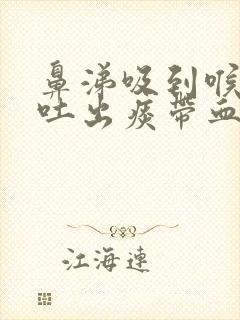 鼻涕吸到喉
吐出痰带血
江海連